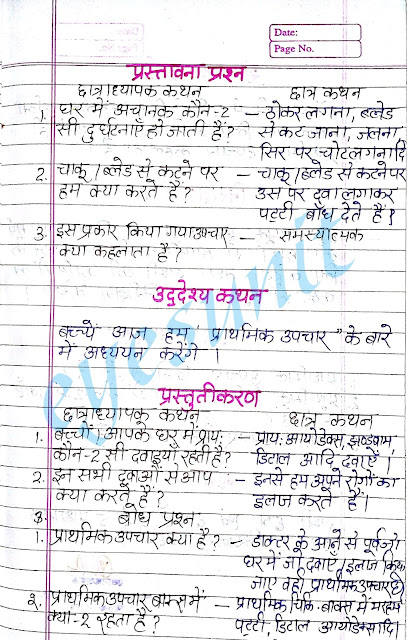 Date:
Page No.
प्रस्तावना प्रश्न
छात्राध्यापक कथन छात्र कथन
1. घर में अचानक कौन-2 – ठोकर लगना, ब्लेड
सी दुर्घटनाएं हो जाती है ? से कट जाना, जलना
सिर पर चोट लगना दि
2. चाकू / ब्लेड से कटने पर – चाकू / ब्लेड से कटने पर
हम क्या करते है ? उस पर दवा लगाकर
पट्टी बाँध देते हैं |
3. इस प्रकार किया गया उपचार – समस्यात्मक
क्या कहलाता है ?
उद्देश्य कथन
बच्चों आज हम ' प्राथमिक उपचार " के बारे
में अध्ययन करेंगे |
प्रस्तुतीकरण
छात्राध्यापक कथन छात्र कथन
1. बच्चों ! आपके घर में प्राय: – प्राय: आयोडेक्स, झण्डुबाम
कौन-2 सी दवाइयाँ रहती है ? डिटाल आदि दवाएँ |
2. इन सभी दवाओं से आप – इनसे हम अपने रोगों का
क्या करते हैं ? इलाज करते हैं |
3. बोध प्रश्न
1. प्राथमिक उपचार क्या है ? – डाक्टर के आने से पूर्व जो
घर में जो दवाएँ / इलाज किया
जाए वही प्राथमिक उपचार है
2. प्राथमिक उपचार बाक्स में – प्राथमिक चिकि. बाक्स में मरहम
क्या-2 रहता है ? पट्टी, डिटाल आयोडेक्सादि |
eyesunit